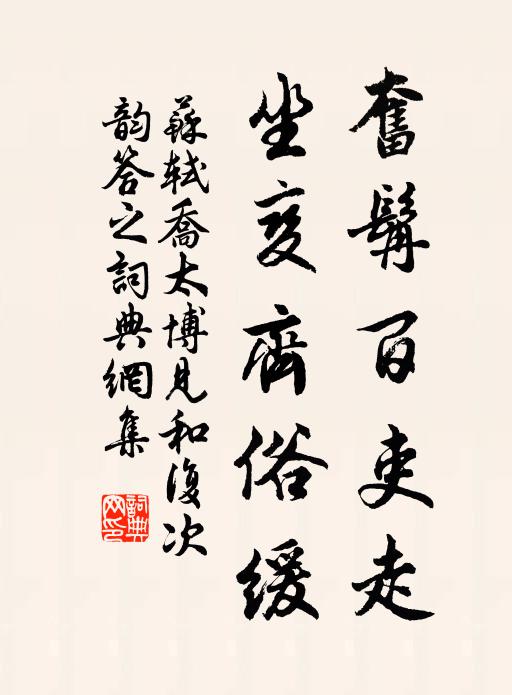 奮髯百吏走
坐變齊俗緩
蘇軾喬太博見和復次
韵答之詞典網集
詞典網印